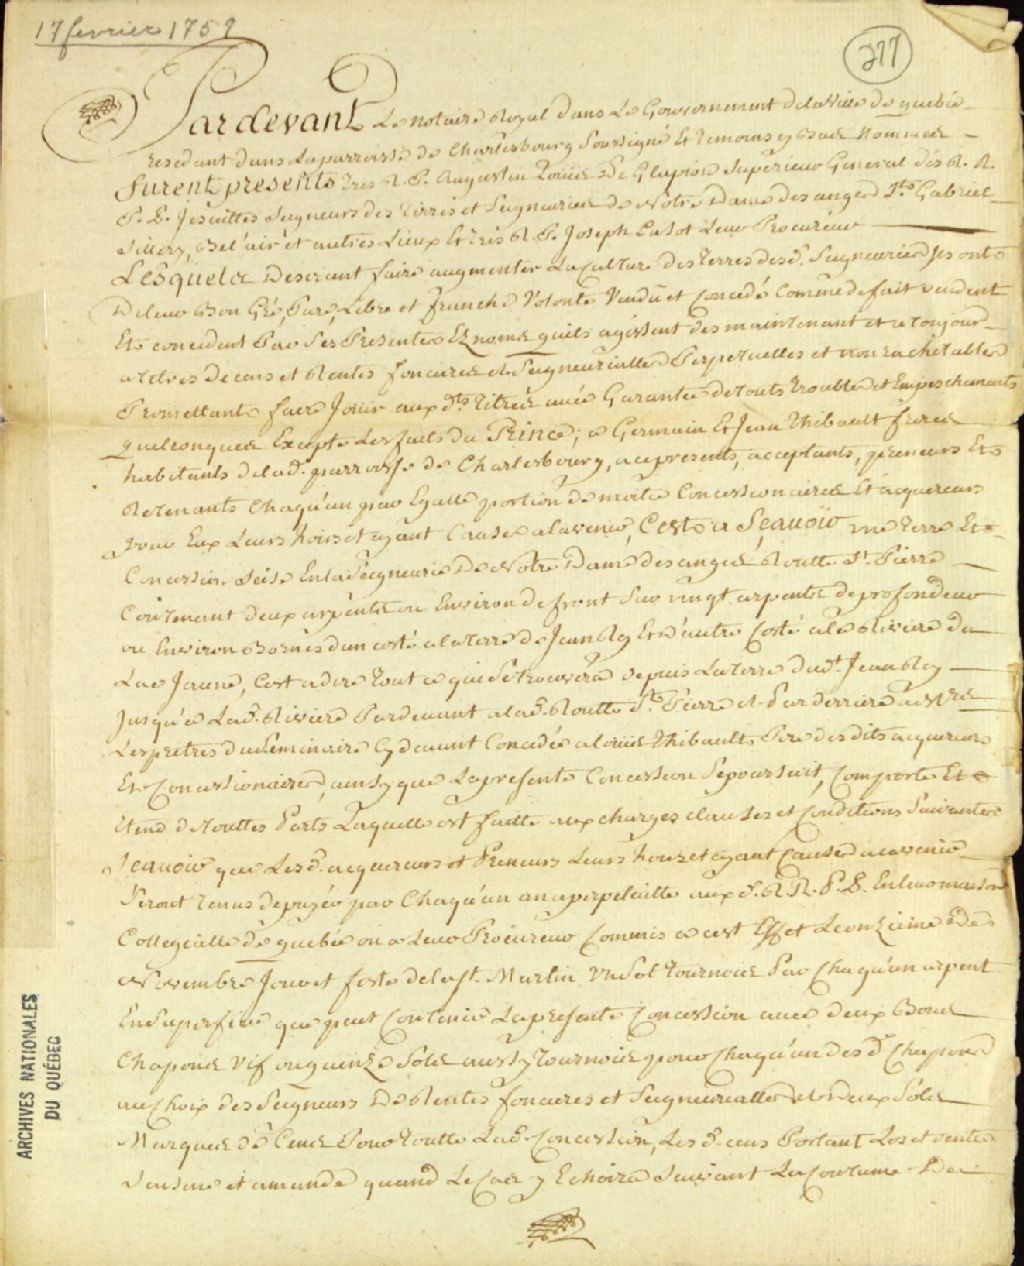 17 fevrier 1759
277
Pardevant Le Notaire Royal dans Le Gouvernement de la Ville de quebec
Residant dans La parroisse de Charlesbourg Soussigné Et temoins cy bas Nommés
furent presents tres R. P. Augustin Loüis De Glapion Superieur General des R. R.
P. P. Jesuittes Seigneurs des terres et Seigneuries de Notre Dame des anges St. Gabriel
Sillery, Bel'air et autres Lieux Et tres R. P. Joseph Luisot Leur Procureur
Lesquels Desirant faire augmenter La Culture des terres desd. Seigneuries Ils ont
De leur Bon Gré, Pure, Libre et franche Volonté Vendu et Concedé Comme de fait vendent
Et concedent Par Les Presentes Es noms quils agissent des maintenant et a toujours
a titres de cens et Rentes foncieres et Seigneurialles Perpetuelles et non rachetables
Promettants faire Jouir auxd. titres avec Garantie de touts troubles et Empeschements
quelconques Excepté Les faits du Prince; a Germain Et Jean Thibault freres
habitants de lad. parroisse de Charlesbourg, a ce presents, acceptants, preneurs Et
Retenants Chaqu'un par Egalle portion de moitié Concessionnaires Et acquereurs
pour Eux Leurs hoirs et ayant Cause a l'avenir, C'est a Sçavoir une terre Et
Concession Seise En La Seigneurie De Notre Dame des anges Routte St. Pierre
Contenant deux arpents ou Environ de front Sur vingt arpents de profondeur
ou Environ Bornés d'un costé a la terre de Jean Roy Et d'autre Costé a la Riviere du
Lac Jaune, C'est a dire tout ce qui Se trouvera depuis La terre dud. Jean Roy
Jusqu'a Lad. Riviere Par devant a lad. Routte St. Pierre et Par derriere a Mrs
Les pretres du Seminaire Cy devant Concedée a Loüis Thibault Pere des dits acquereurs
Et Concessionnaires, ainsy que La presente Concession Se poursuit, Comporte Et
Etend de touttes Parts Laquelle est faitte aux charges clauses et Conditions Suivantes
Sçavoir que Lesd. acquereurs et Preneurs Leurs hoirs et ayant Cause a l'avenir
Seront tenus de payer par Chaqu'un an a perpetuitté auxd. R. R. P. P. En leur maison
Collegialle de quebec ou a Leur Procureur Commis a cet Effet Le onzieme de
Novembre Jour et feste de la St. Martin un Sol tournois Par Chaqu'un arpent
En Superficie que peut Contenir La presente Concession avec deux Bons
Chapons vif ou quinze Sols aussy tournois pour Chaqu'un desd. Chapons
au Choix des Seigneurs De Rentes foncieres et Seigneurialles et deux Sols
Marqués de Cens Pour toutte Lad. Concession, Lesd. cens Portant Los et ventes
Saisine et amande quand Le Cas y Echoira Suivant La Coutume De
ARCHIVES NATIONALES
DU QUÉBEC